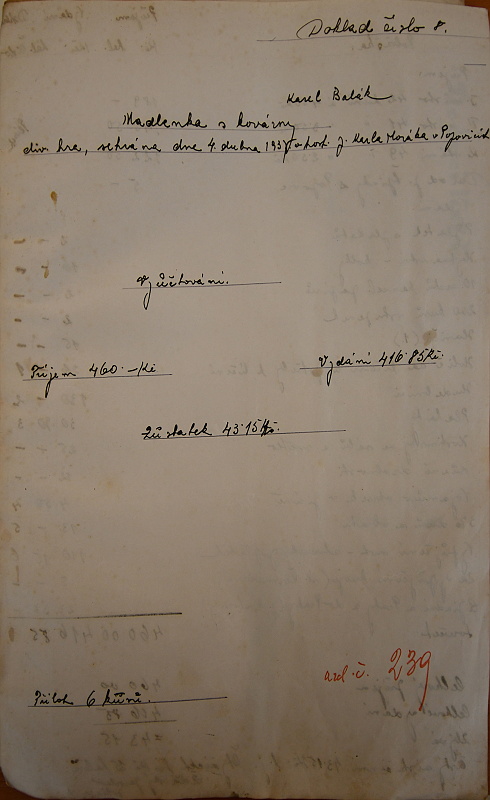 Doklad číslo 8.
Karel Balák
Madlenka s kovárny
div. hra, sehrána dne 4. dubna 1937 v host. p. Karla Horáka v Popovicích
Vyúčtování.
Příjem 460.-Kč
Vydání 416.85Kč.
Zůstatek 43.15Kč.
Příloh 6 kusů.
č. 239